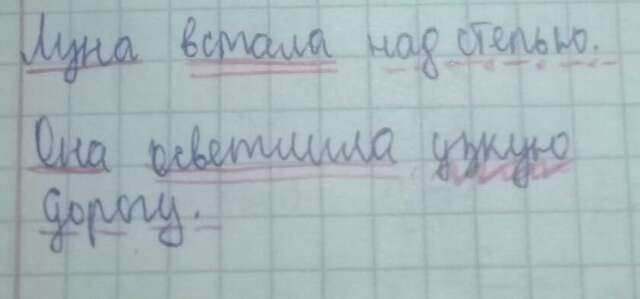 Луна встала над степью.
Она осветила узкую
дорогу.